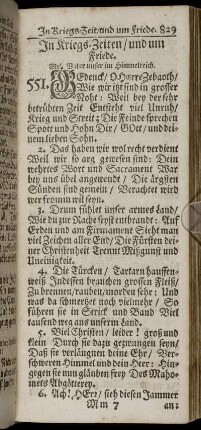 In Kriegs-Zeit/und um Friede. 829
In Kriegs-Zeiten/ und um
Friede.
Mel. Vater unser im Himmelreich.
551. GEdenck/ O HErre Zebaoth/
Wie wir itzt sind in grosser
Noht: Weil bey der sehr
betrübten Zeit Entsteht viel Unruh/
Krieg und Streit; Die Feinde sprechen
Spott und Hohn Dir/ GOtt/ und dei-
nem lieben Sohn.
2. Das haben wir wol recht verdient
Weil wir so arg gewesen sind: Dein
wehrtes Wort und Sacrament War
bey uns übel angewendt/ Die ärgsten
Sünden sind gemein/ Verachtet wird
wer fromm wil seyn.
3. Drum fühlet unser armes Land/
Wie du zur Rache seyst entbrandt: Auf
Erden und am Firmament Sieht man
viel Zeichen aller End/ Die Fürsten dei-
ner Christenheit Trennt Mißgunst und
Uneinigkeit.
4. Die Türcken/ Tartarn hauffen-
weiß Indessen brauchen grossen Fleiß/
Zu brennen/rauben/morden sehr: Und
was da schmertzet noch vielmehr/ So
führen sie in Strick und Band Viel
tausend weg aus unserm Land.
5. Viel Christen/ leider! groß und
klein Durch sie dazu gezwungen seyn/
Daß sie verläugnen deine Ehr/ Ver-
schweren Himmel und dein Heer: Hin-
gegen sie nun gläuben frey Des Maho-
mets Abgötterey.
6. Ach! HErr/ sieh diesen Jammer
M m 7 an: